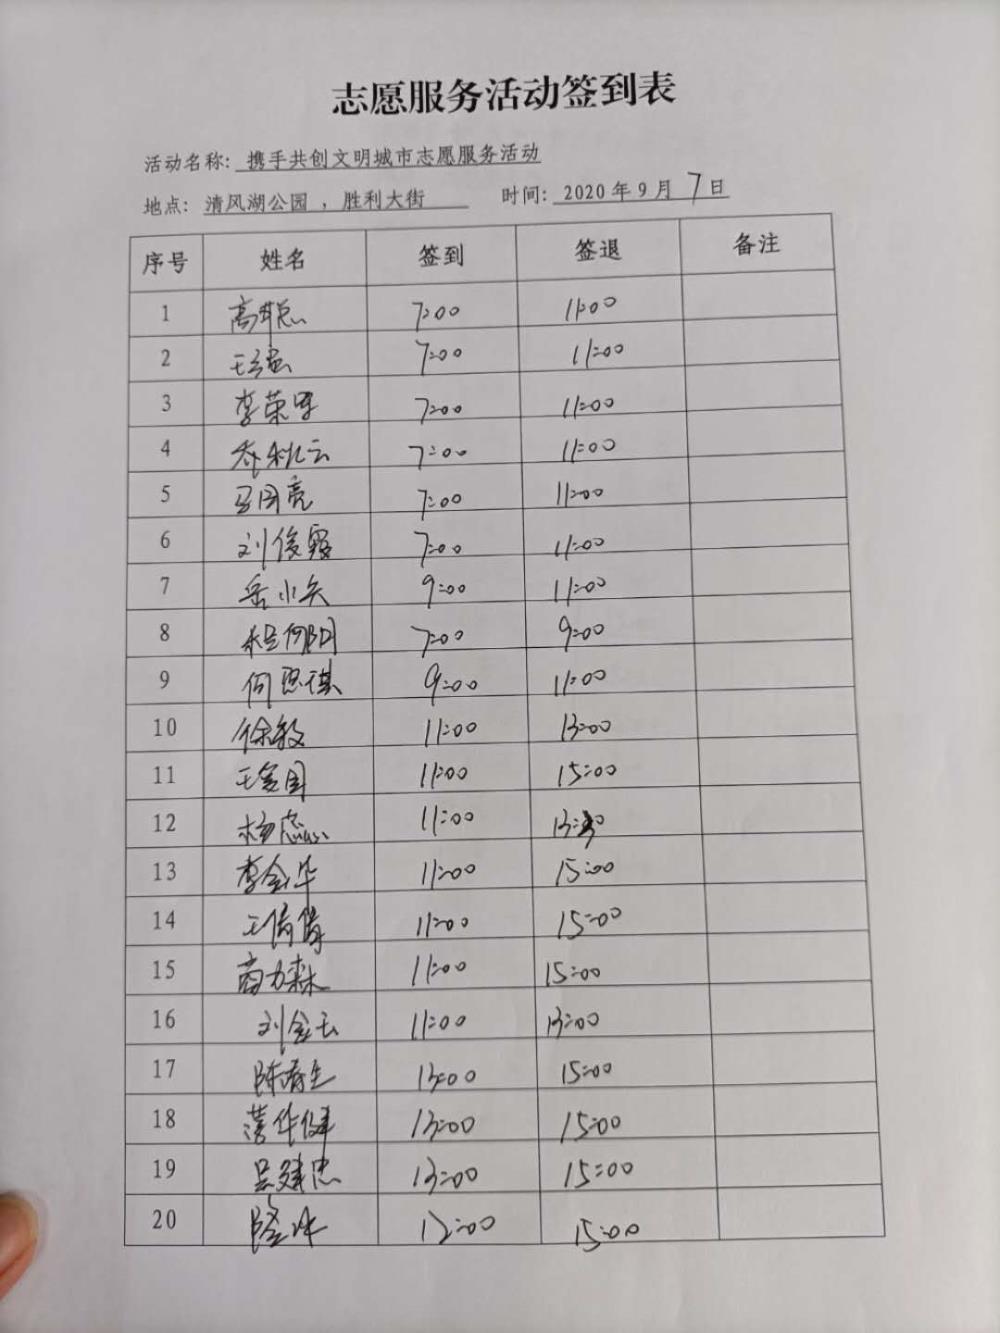 志愿服务活动签到表
活动名称: 携手共创文明城市志愿服务活动
地点: 清风湖公园 ，胜利大街 时间: 2020年9月7日
序号 姓名 签到 签退 备注
1 高 7:00 11:00
2 王 7:00 11:00
3 李荣 7:00 11:00
4 乔秋云 7:00 11:00
5 马国亮 7:00 11:00
6 刘俊霞 7:00 11:00
7 岳小 9:00 11:00
8 程向阳 7:00 9:00
9 何思祺 9:00 11:00
10 徐毅 11:00 13:00
11 王爱国 11:00 15:00
12 杨蕊 11:00
13 李金华 11:00 15:00
14 王倩倩 11:00 15:00
15 商力森 11:00 15:00
16 刘金玉 11:00 13:00
17 陈春生 13:00 15:00
18 作健 13:00 15:00
19 吴建忠 13:00 15:00
20 15:00